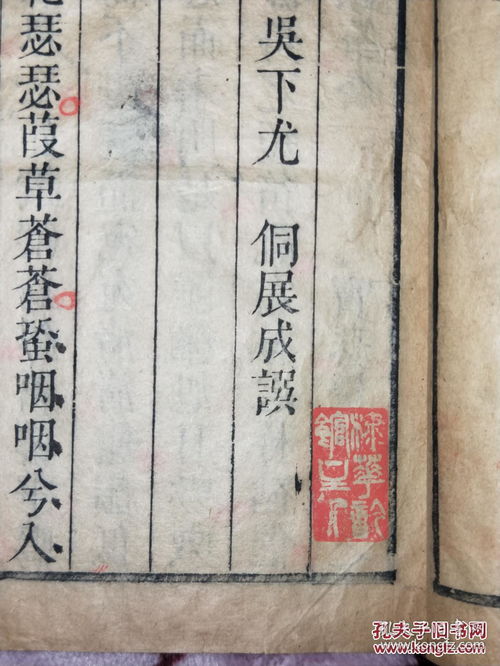 吳下尤 侗展成譔
瑟瑟葭草蒼蒼蛩咽咽兮入
孔夫子旧书网
www.kongfz.com